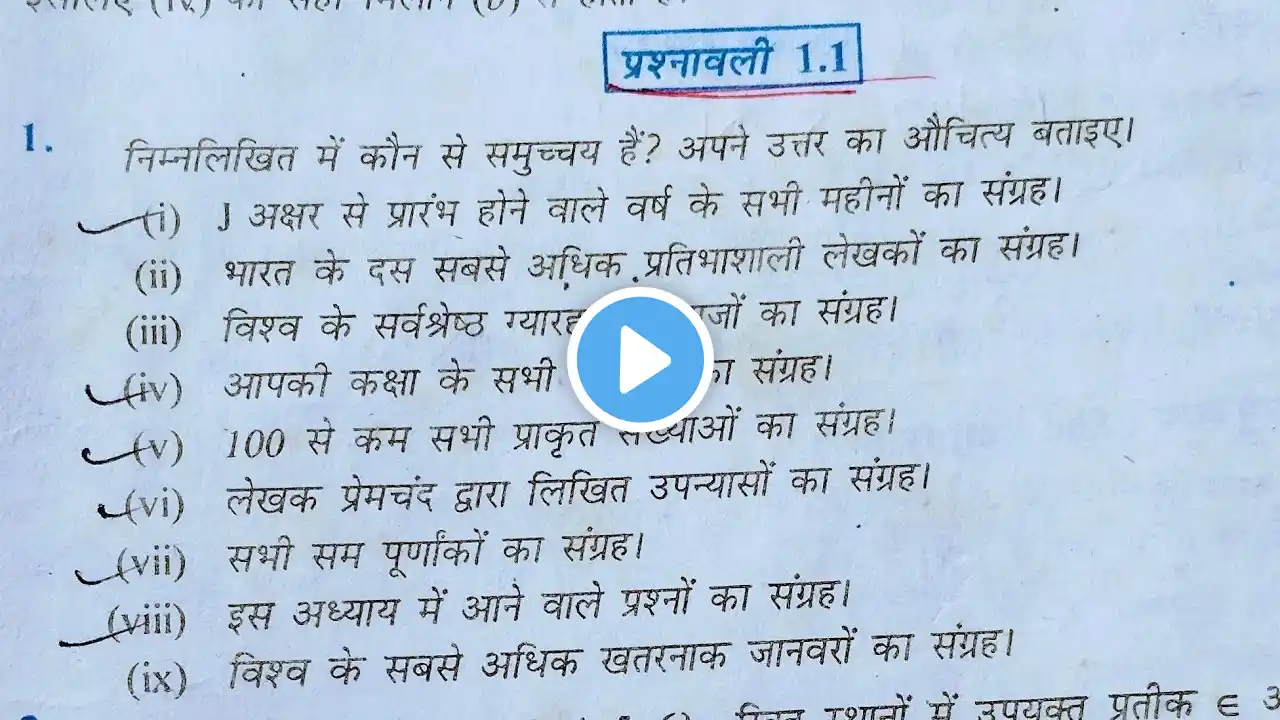 प्रश्नावली 1.1
1. निम्नलिखित में कौन से समुच्चय हैं? अपने उत्तर का औचित्य बताइए।
(i) J अक्षर से प्रारंभ होने वाले वर्ष के सभी महीनों का संग्रह।
(ii) भारत के दस सबसे अधिक प्रतिभाशाली लेखकों का संग्रह।
(iii) विश्व के सर्वश्रेष्ठ का संग्रह।
(iv) आपकी कक्षा के सभी का संग्रह।
(v) 100 से कम सभी प्राकृत संख्याओं का संग्रह।
(vi) लेखक प्रेमचंद द्वारा लिखित उपन्यासों का संग्रह।
(vii) सभी सम पूर्णांकों का संग्रह।
(viii) इस अध्याय में आने वाले प्रश्नों का संग्रह।
(ix) विश्व के सबसे अधिक खतरनाक जानवरों का संग्रह।
में उपयुक्त प्रतीक ∈